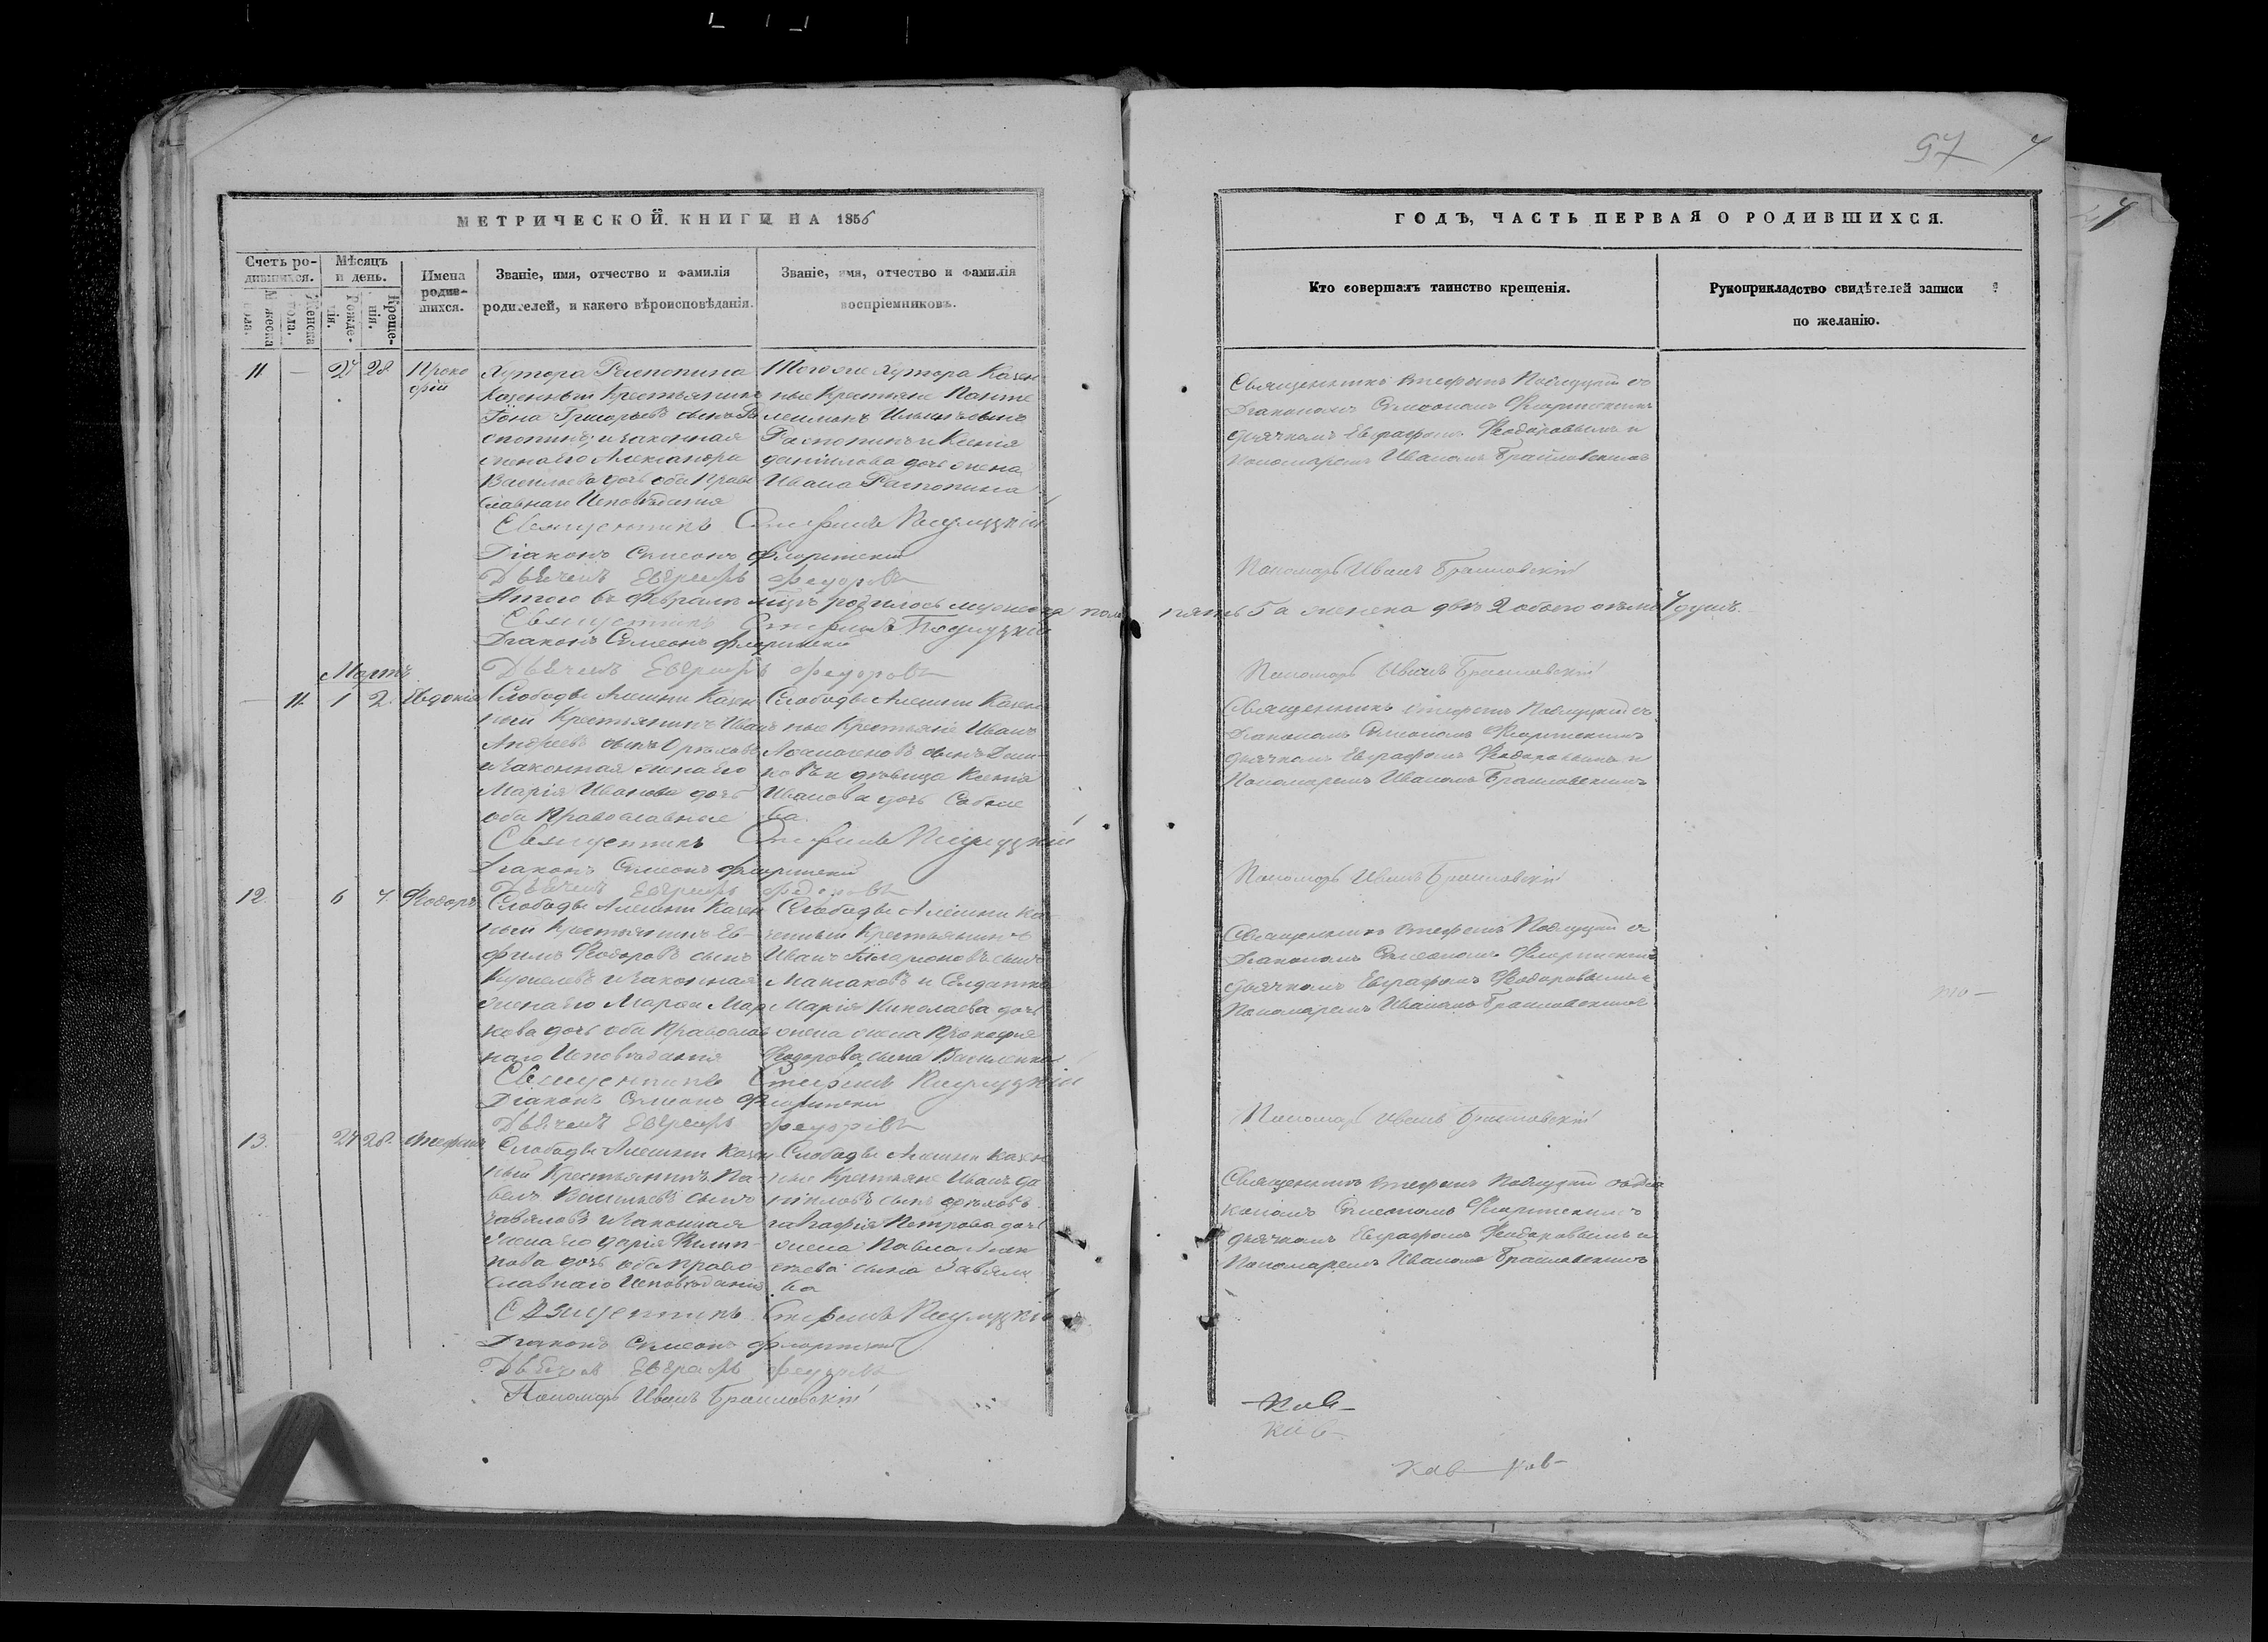 97 7
МЕТРИЧЕСКОЙ КНИГИ НА 1856
ГОДЪ, ЧАСТЬ ПЕРВАЯ О РОДИВШИХСЯ.
Счетъ ро-
дившихся.
Мужеска
пола.
Женска
пола.
Мѣсяцъ
и день.
Рожде-
нія.
Креще-
нія.
Имена
родив-
шихся.
Званіе, имя, отчество и фамилія
родителей, и какого вѣроисповѣданія.
Званіе, имя, отчество и фамилія
воспріемниковъ.
Кто совершалъ таинство крещенія.
Рукоприкладство свидѣтелей записи
по желанію.
11 — 27 28 Проко
фій
Хутора Распопина
Казенный Крестьянинъ
Іона Григорьевъ сынъ Ра
спопинъ и законная
жена его Александра
Васильева дочь оба Право
славнаго Исповѣданія
Того же Хутора Казен
ные Крестьяне Панте
леимонъ Ильинъ сынъ
Распопинъ и Ксенія
Данилова дочь жена
Ивана Распопина
Священникъ Стефанъ Подлуцкій съ
Діакономъ Симеономъ Флоринскимъ
дьячкомъ Евграфомъ Феодоровымъ и
пономаремъ Иваномъ Браиловскимъ
Священникъ Стефанъ Подлуцкій
Діаконъ Симеонъ Флоринскій
Дьячекъ Евграфъ Федоровъ
Пономарь Иванъ Браиловскій
Итого въ Февралѣ мцѣ родилось мужеска пола пять 5 а женска двѣ 2 обоего семь 7 душъ.
Священникъ Стефанъ Подлуцкій
Діаконъ Симеонъ Флоринскій
Дьячекъ Евграфъ Федоровъ
Пономарь Иванъ Браиловскій
Мартъ
— 11 1 2 Евдокія
Слободы Алешни Казен
ный Крестьянинъ Иванъ
Андреевъ сынъ Орѣховъ
и законная жена его
Марія Иванова дочь
оба Православные
Слободы Алешни Казен
ные Крестьяне Иванъ
и дѣвица Ксенія
Иванова дочь
ва
Священникъ Стефанъ Подлуцкій съ
Діакономъ Симеономъ Флоринскимъ
дьячкомъ Евграфомъ Феодоровымъ и
Пономаремъ Иваномъ Браиловскимъ
Священникъ Стефанъ Подлуцкій
Діаконъ Симеонъ Флоринскій
Дьячекъ Евграфъ Федоровъ
Пономарь Иванъ Браиловскій
12 6 7 Феодоръ
Слободы Алешни Казен
ный Крестьянинъ Ев-
фимъ Феодоровъ сынъ
и законная
жена его Марфа Мар
кова дочь оба Православ
наго Исповѣданія
Слободы Алешни Ка
зенный Крестьянинъ
Иванъ Иларіоновъ сынъ
и Солдатка
Марія Николаева дочь
жена Прокофія
Феодорова сына Василенка
Священникъ Стефанъ Подлуцкій съ
Діакономъ Симеономъ Флоринскимъ
дьячкомъ Евграфомъ Феодоровымъ и
Пономаремъ Иваномъ Браиловскимъ
Священникъ Стефанъ Подлуцкій
Діаконъ Симеонъ Флоринскій
Дьячекъ Евграфъ Федоровъ
Пономарь Иванъ Браиловскій
13. 27 28. Стефанъ
Слободы Алешни Казен
ный Крестьянинъ Па-
велъ Васильевъ сынъ
Завяловъ и законная
жена его Дарія Филип-
пова дочь оба Право
славнаго Исповѣданія
Слободы Алешни Казен
ные Крестьяне Иванъ Да
ниловъ сынъ Орѣховъ
и Агафія Петрова дочь
жена Павла Алек
сѣева сына Завяло
ва
Священникъ Стефанъ Подлуцкій съ діа
кономъ Симеономъ Флоринскимъ
дьячкомъ Евграфомъ Феодоровымъ и
Пономаремъ Иваномъ Браиловскимъ
Священникъ Стефанъ Подлуцкій
Діаконъ Симеонъ Флоринскій
Дьячекъ Евграфъ Федоровъ
Пономарь Иванъ Браиловскій